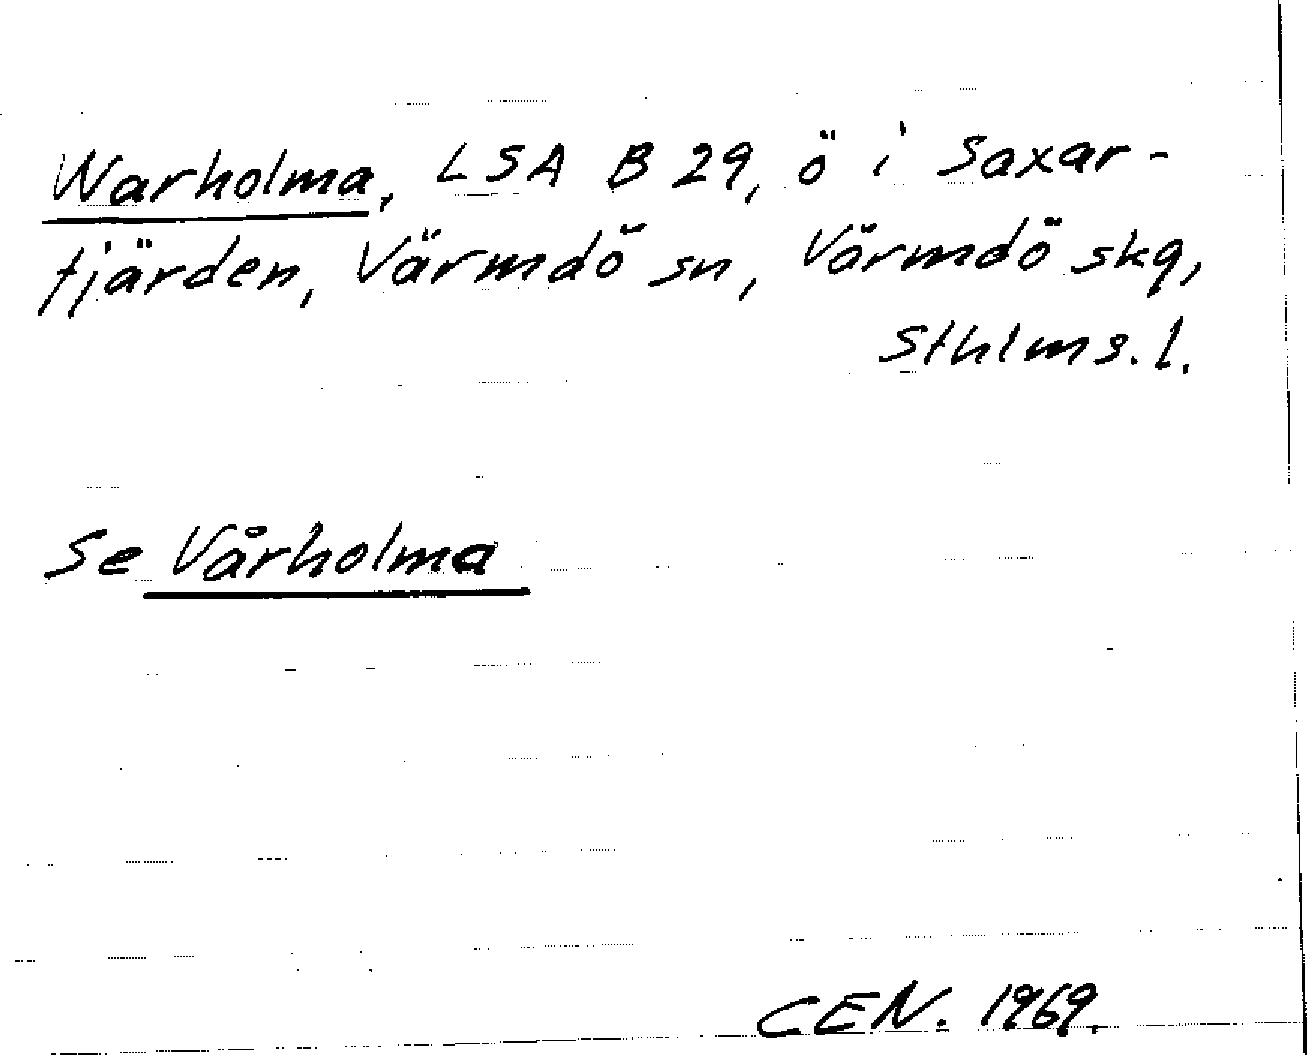 Warholma, LSA B 29, ö i Saxar-
fjärden, Värmdö sn, Värmdö skg,
Sthlms. l.
Se Vårholma
CEN. 1969.